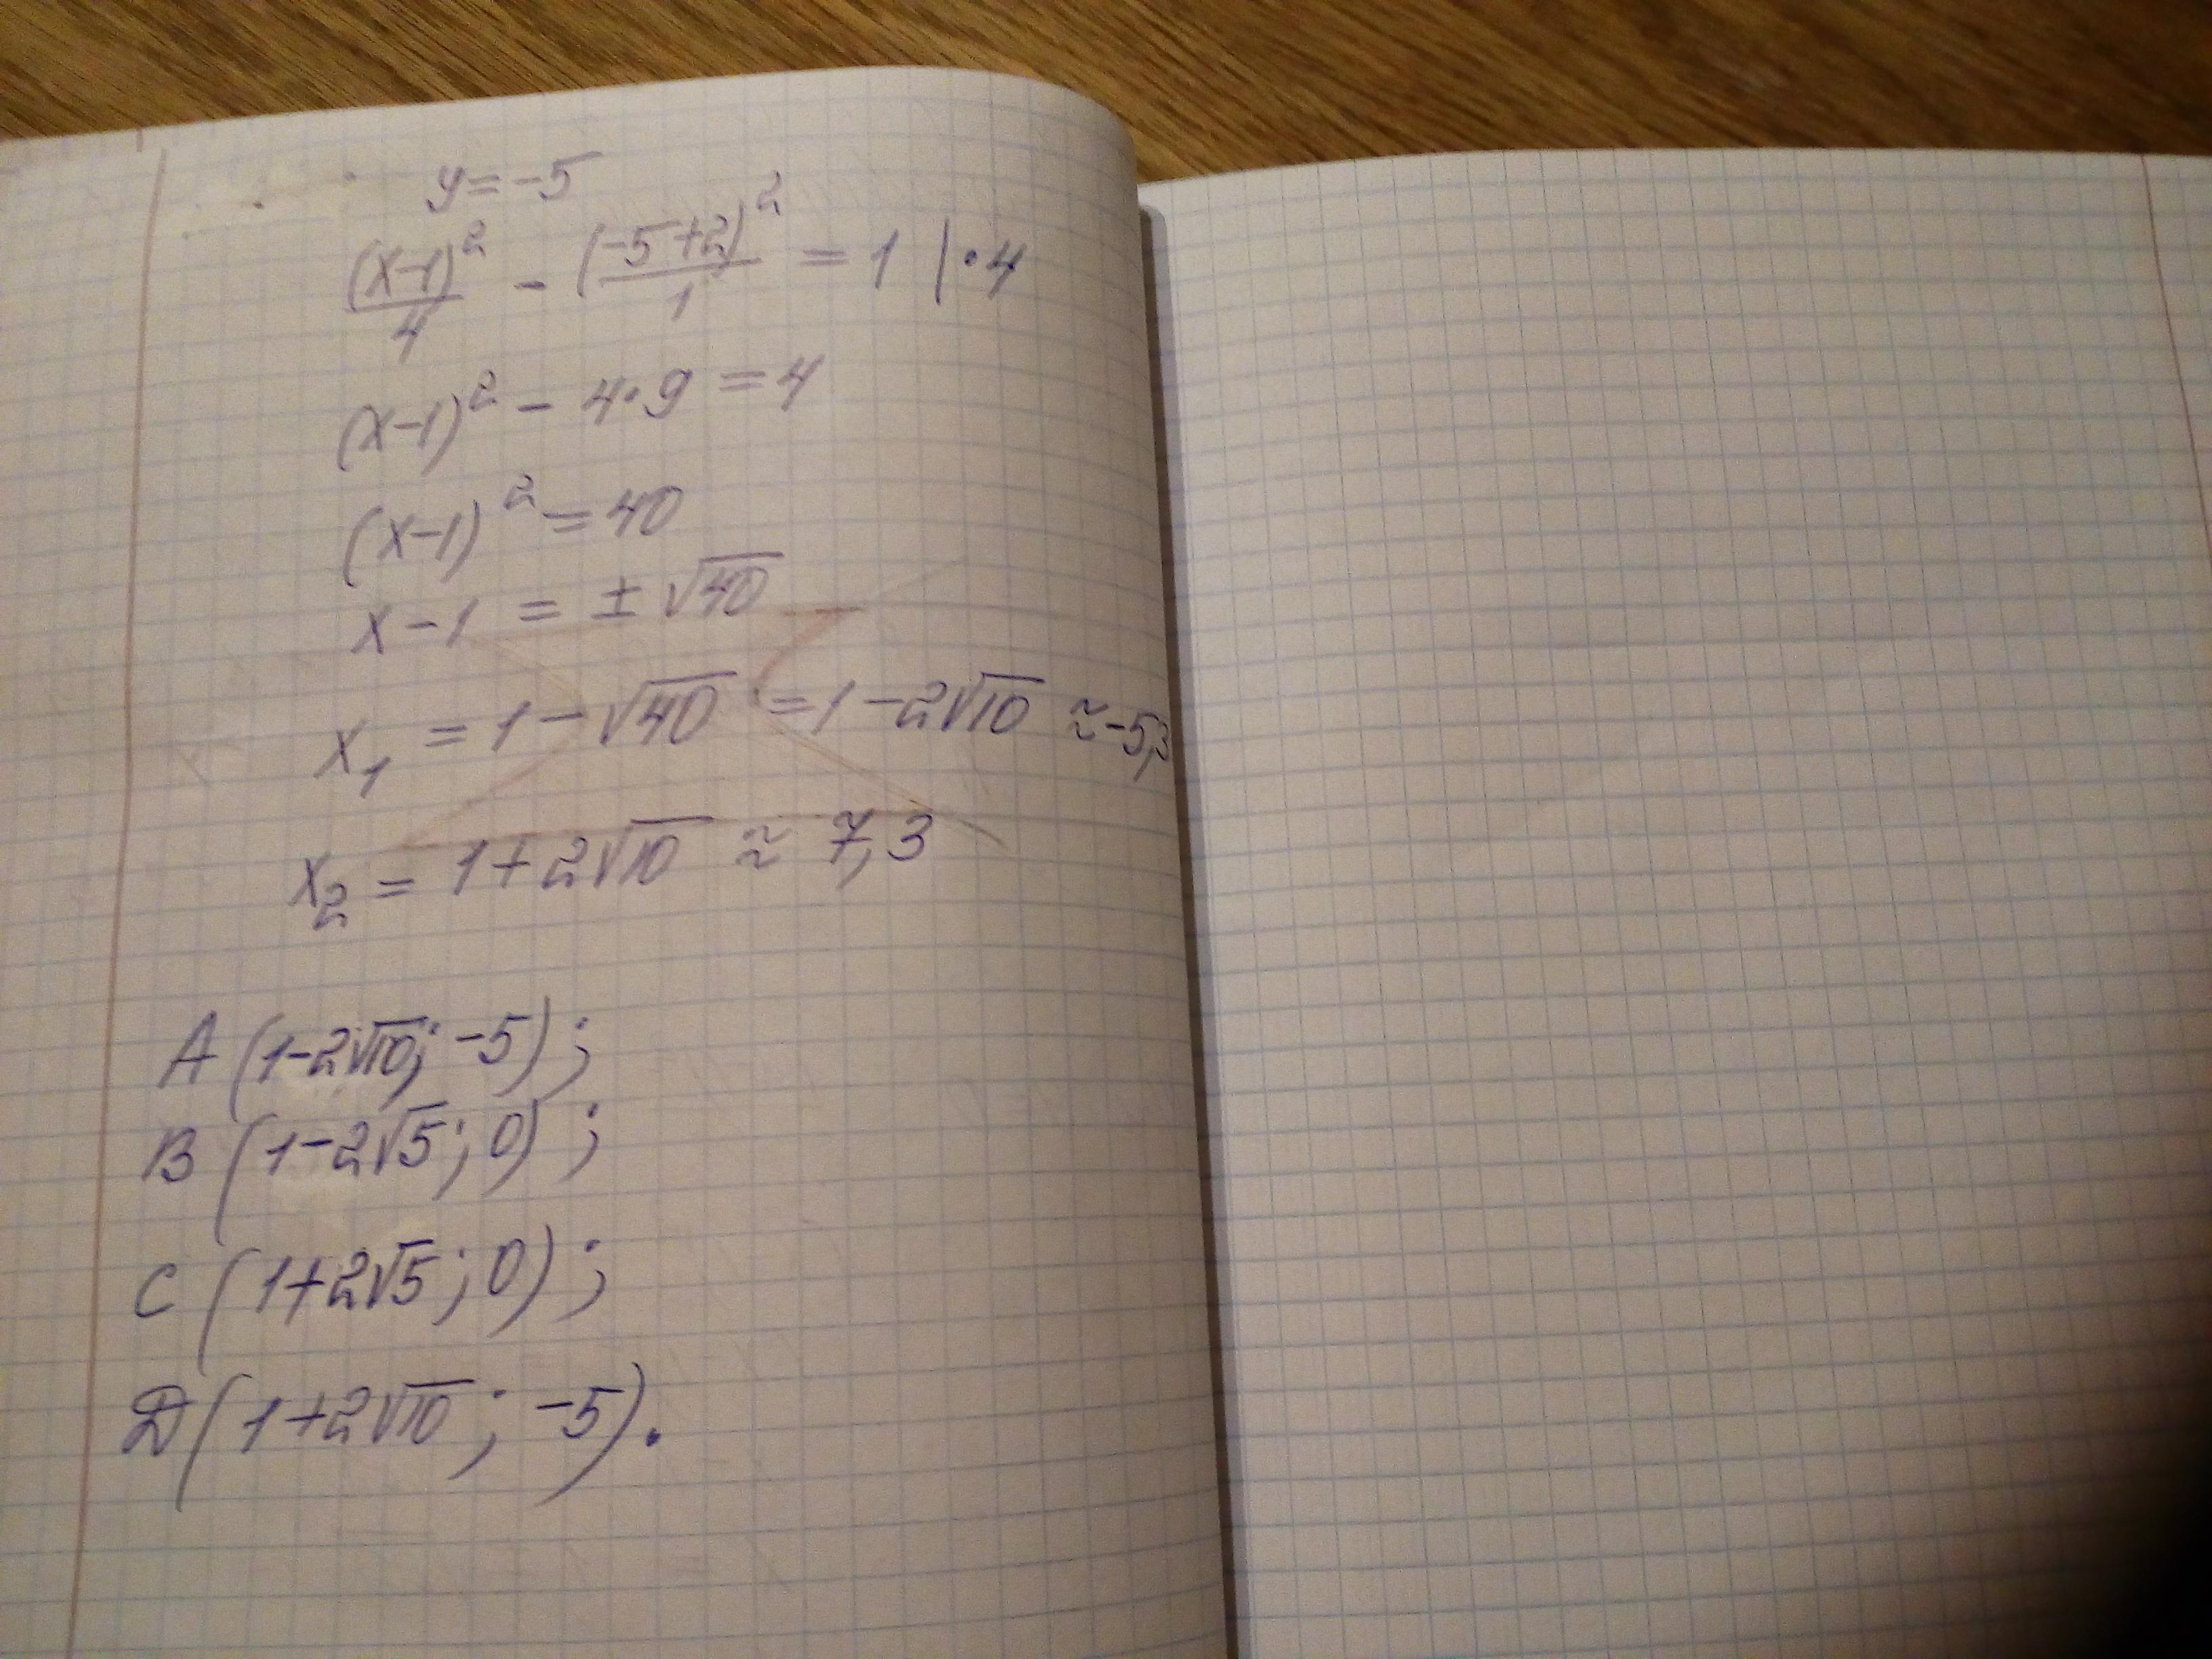 y = -5
(x-1)²/4 - (-5+2)²/1 = 1 | • 4
(x-1)² - 4•9 = 4
(x-1)² = 40
x - 1 = ± √40
x₁ = 1 - √40 = 1 - 2√10 ≈ -5,3
x₂ = 1 + 2√10 ≈ 7,3
A (1-2√10; -5);
B (1-2√5; 0);
C (1+2√5; 0);
D (1+2√10; -5).